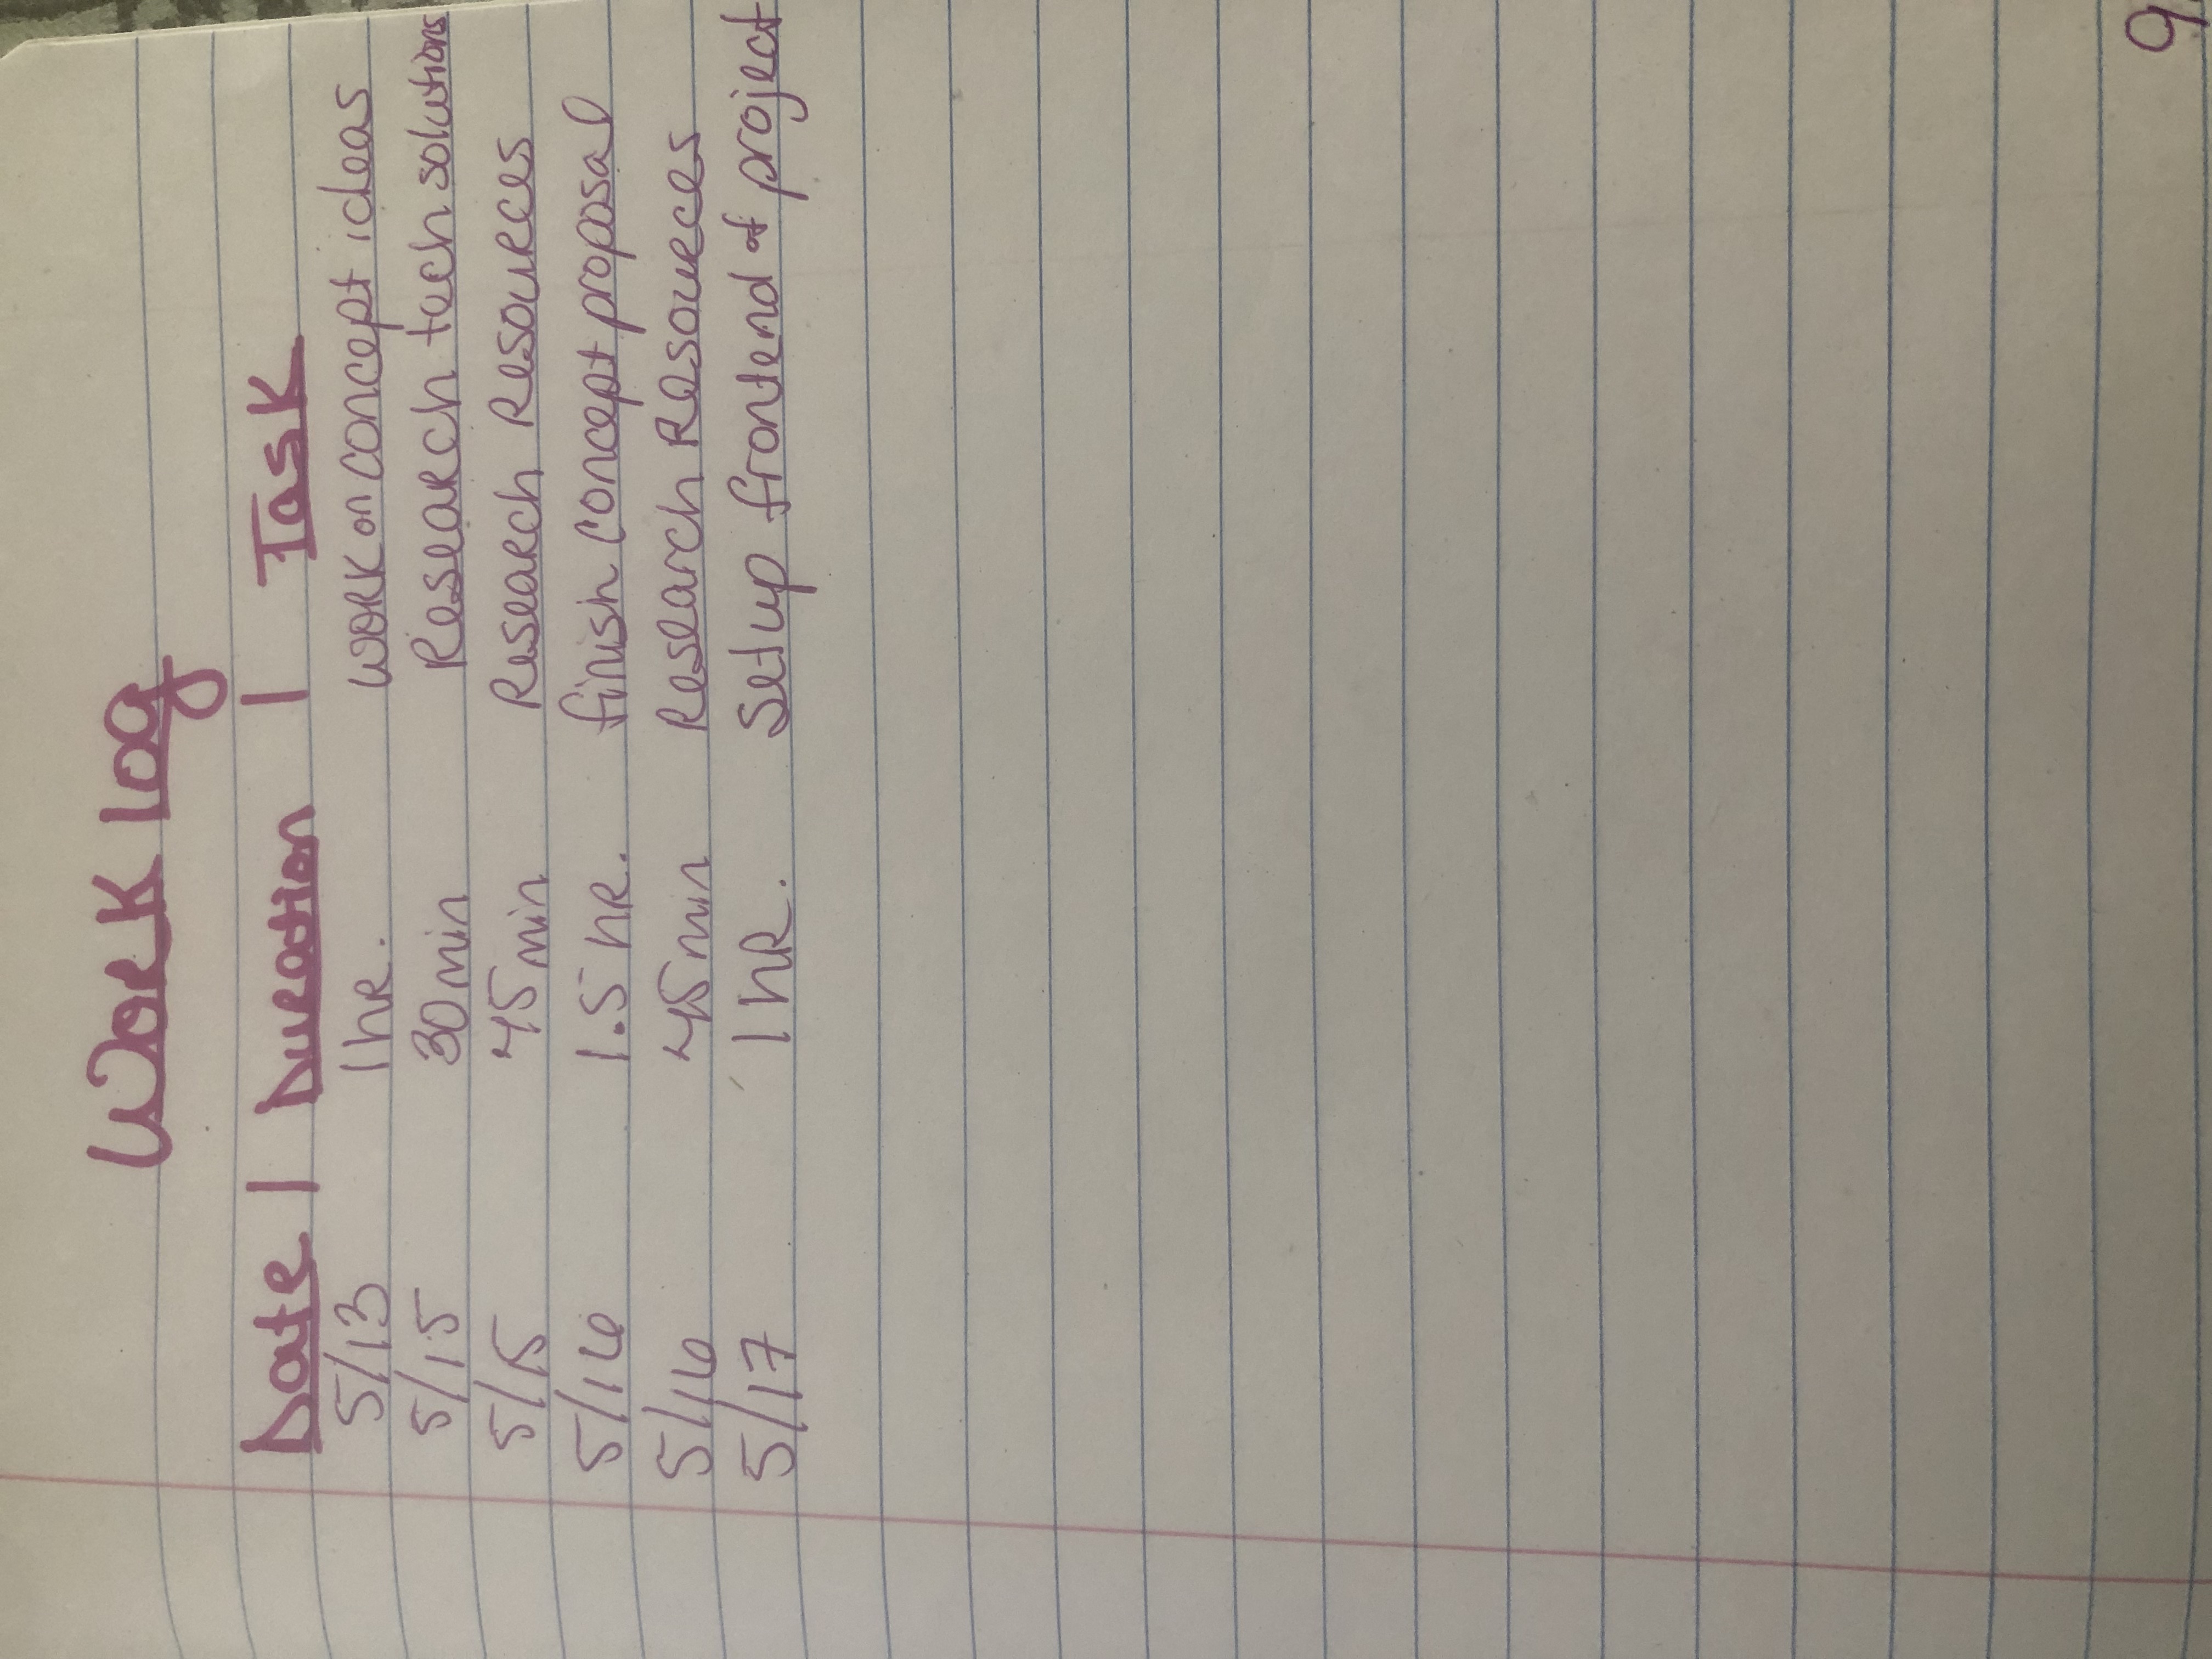 Work log
Date | Duration | Task
5/13 1 hr. work on concept ideas
5/15 30 min Research tech solutions
5/15 45 min Research Resources
5/16 1.5 hr. finish concept proposal
5/16 45 min Research Resources
5/17 1 hr. Setup frontend of project
9